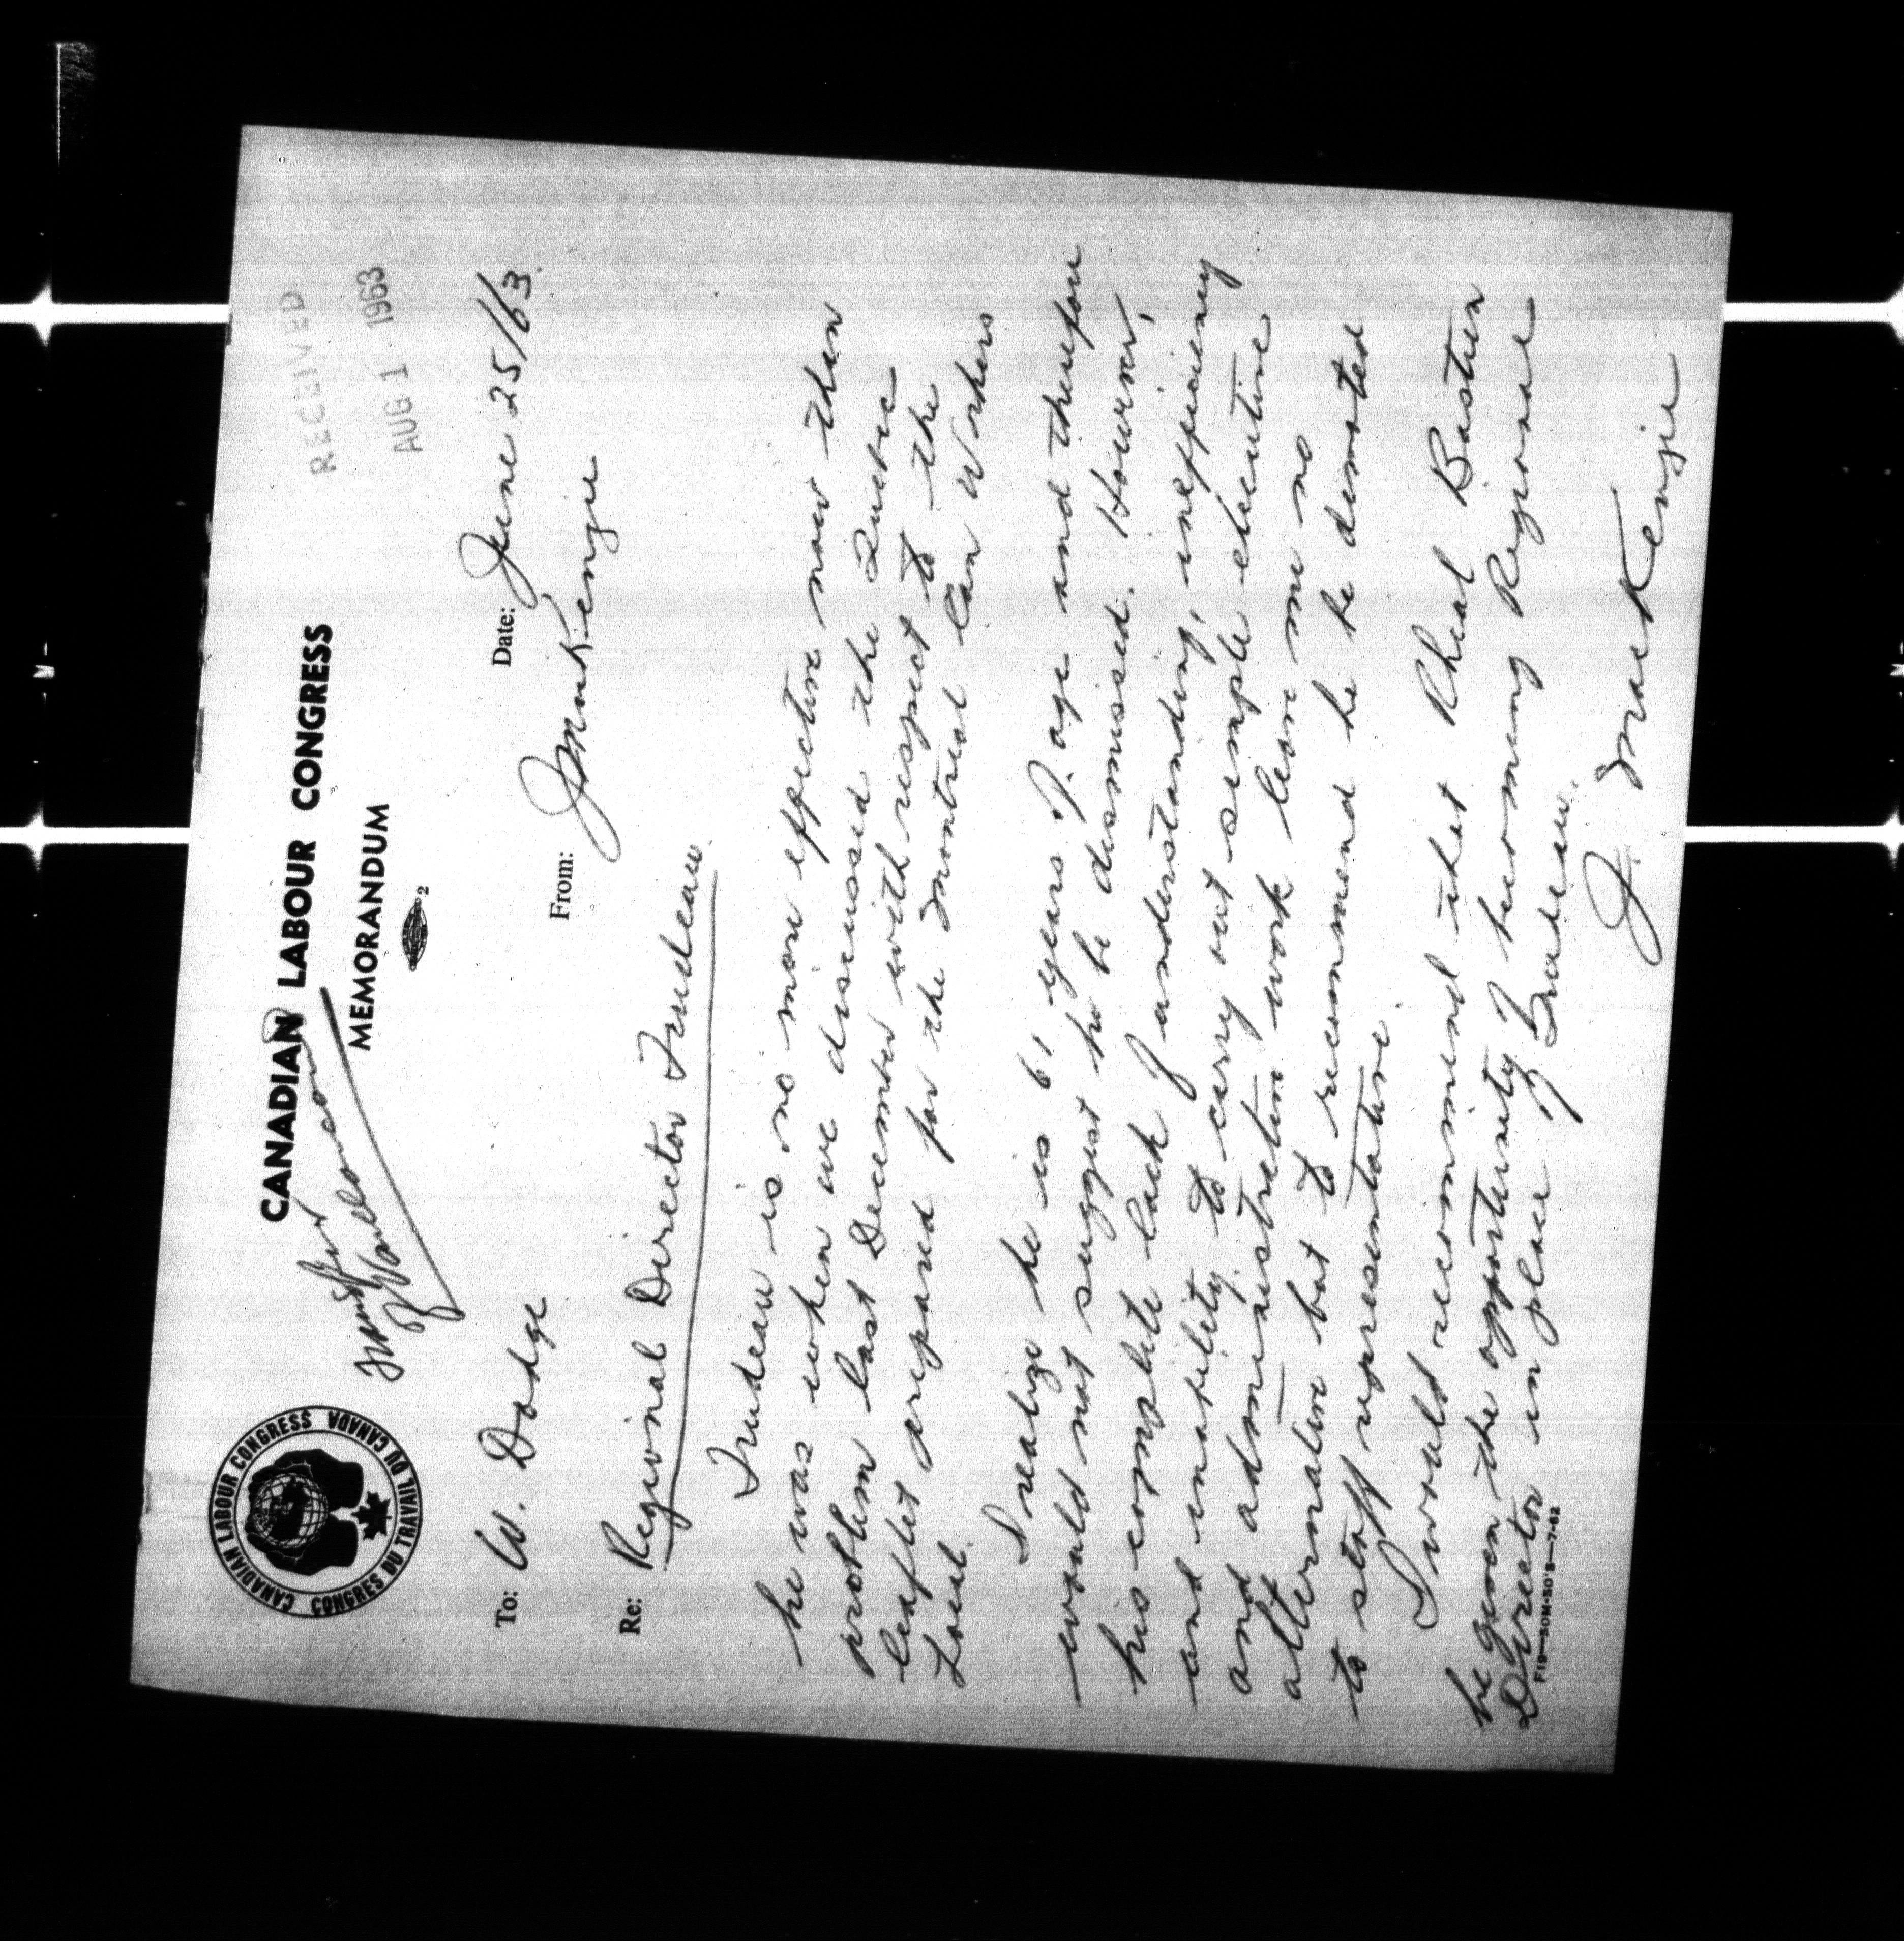 CANADIAN LABOUR CONGRESS
CONGRES DU TRAVAIL DU CANADA
CANADIAN LABOUR CONGRESS
MEMORANDUM
2
RECEIVED
AUG 1 1963
To: W. Dodge
Date: June 25/63.
From: J MacKenzie
Re: Regional Director Trudeau.
Trudeau is no more effective now than
he was when we discussed the Quebec
problem last December with respect to the
leaflet prepared for the Montreal Can Workers
Local.
I realize he is 61 years of age and therefore
would not suggest he be dismissed. However,
his complete lack of understanding, inefficiency
and inability to carry out simple executive
and administration work leave me no
alternative but to recommend he be demoted
to staff representative.
I would recommend that Rheal Bastien
be given the opportunity of becoming Regional
Director in place of Trudeau.
J. MacKenzie
F19—50M-50's—7-62